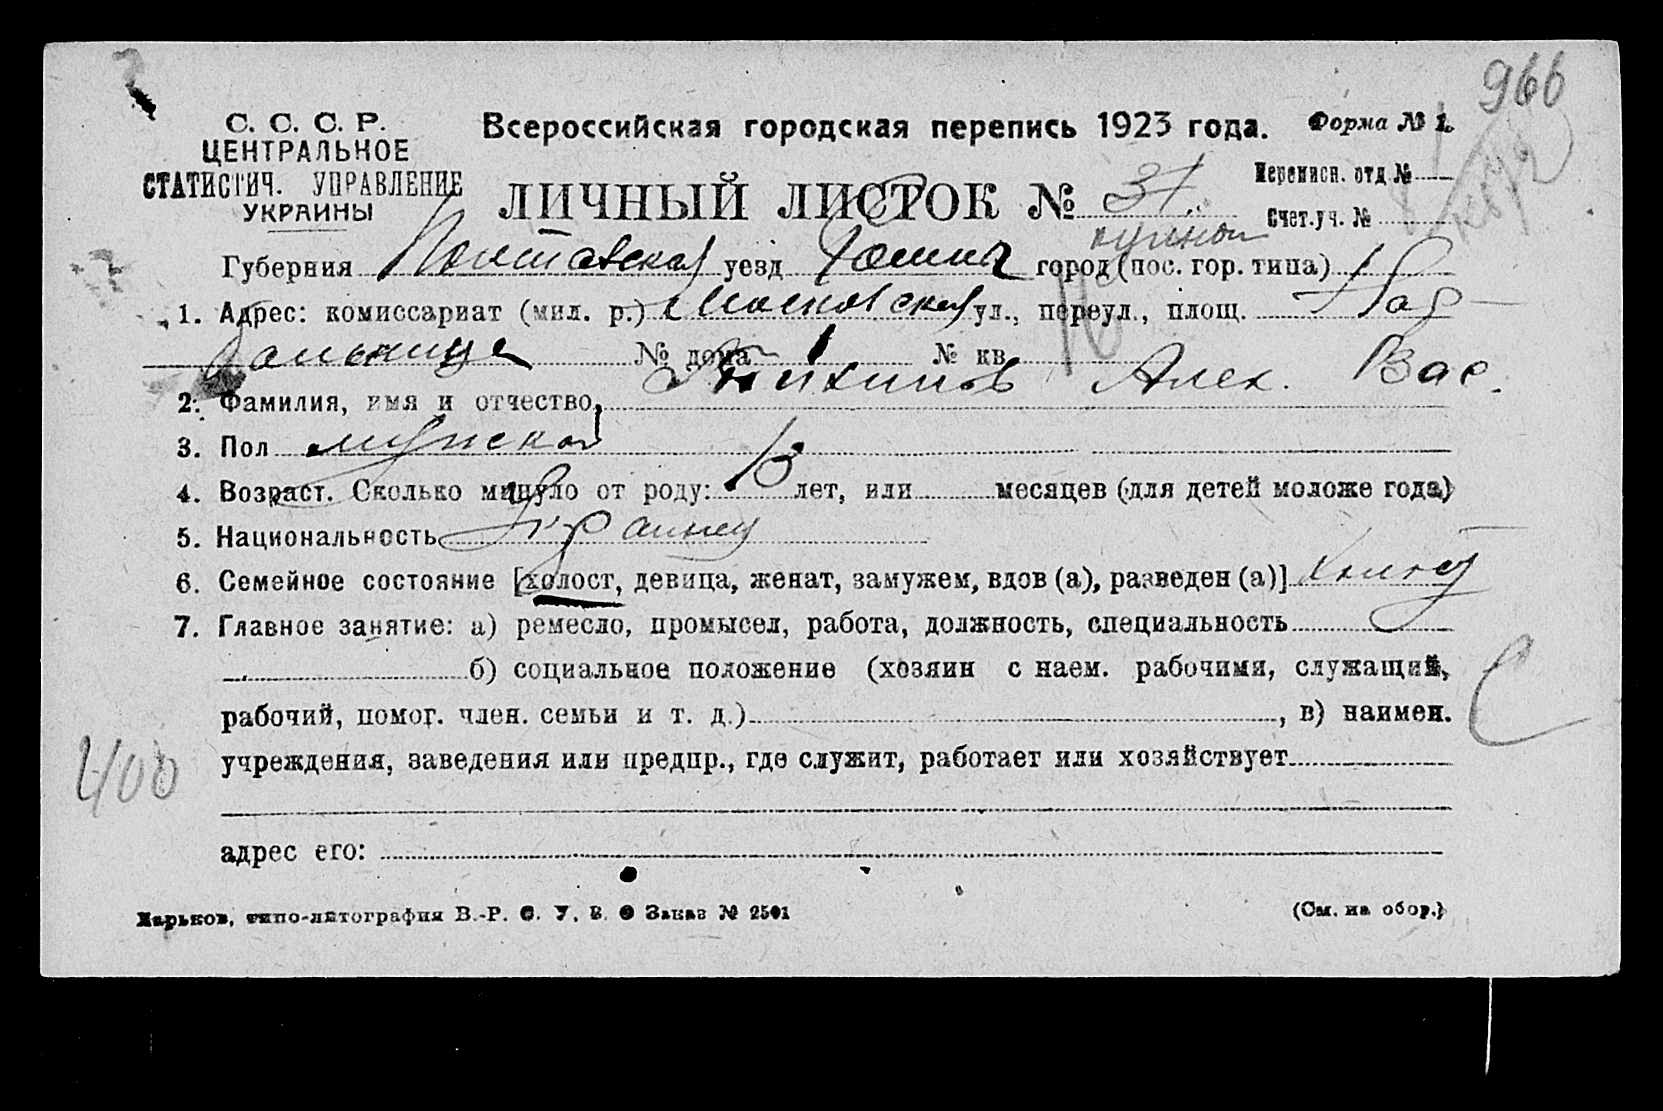 966
С. С. С. Р.
ЦЕНТРАЛЬНОЕ
СТАТИСТИЧ. УПРАВЛЕНИЕ
УКРАИНЫ
Всероссийская городская перепись 1923 года.
Форма № 1.
ЛИЧНЫЙ ЛИСТОК № 37
Переписн. отд №
Счет.уч. №
Губерния Полтавская уезд Ромны город (пос. гор. типа)
1. Адрес: комиссариат (мил. р.) Московская ул., переул., площ.
№ дома 1 № кв.
2. Фамилия, имя и отчество, Алек. Вас.
3. Пол мужской
4. Возраст. Сколько минуло от роду: 13 лет, или месяцев (для детей моложе года)
5. Национальность Украинец
6. Семейное состояние [холост, девица, женат, замужем, вдов (а), разведен (а)] холост
7. Главное занятие: а) ремесло, промысел, работа, должность, специальность
б) социальное положение (хозяин с наем. рабочими, служащий,
рабочий, помог. член. семьи и т. д.) , в) наимен.
учреждения, заведения или предпр., где служит, работает или хозяйствует
400
адрес его:
Харьков, типо-литография В.-Р. С. У. В. О Заказ № 2501
(См. на обор.)